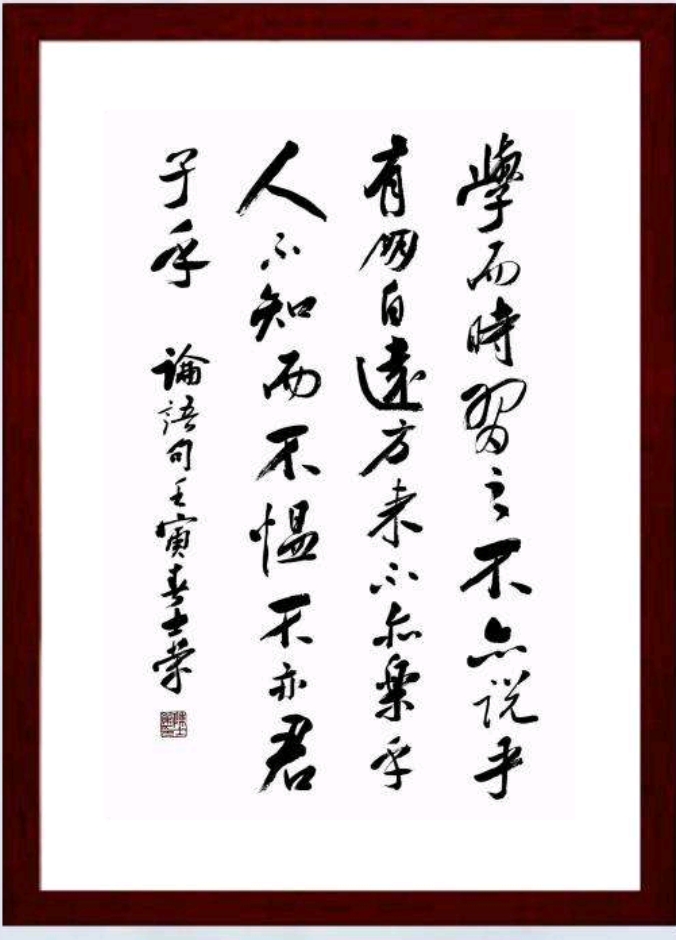 學而時習之不亦説乎
有朋自遠方来不亦樂乎
人不知而不愠不亦君
子乎
論語句壬寅春士榮